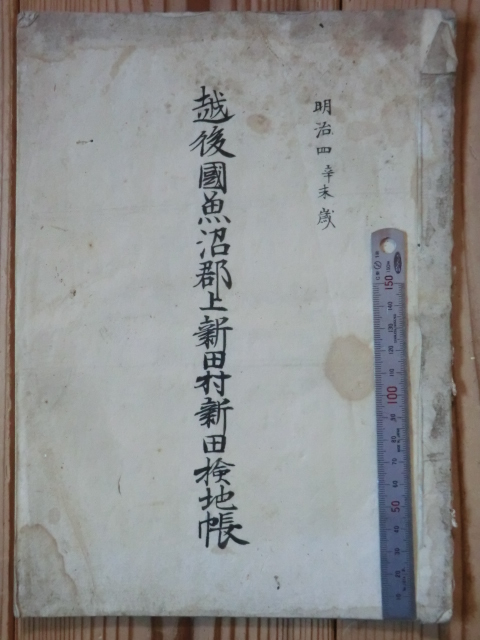 明治四辛未歳
越後國魚沼郡上新田村新田検地帳
150
100
50